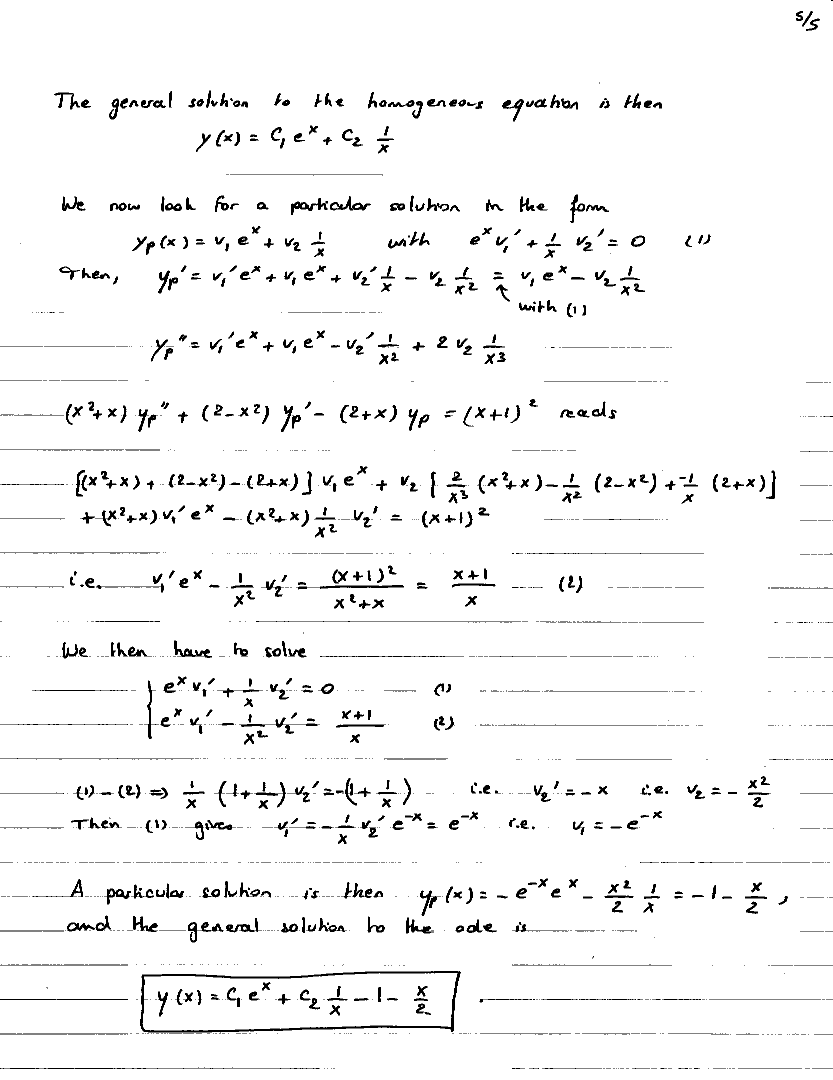 5/5
The general solution to the homogeneous equation is then
y(x) = C₁ eˣ + C₂ 1/x
We now look for a particular solution in the form
yp(x) = v₁ eˣ + v₂ 1/x with eˣ v₁' + 1/x v₂' = 0 (1)
Then, yp' = v₁' eˣ + v₁ eˣ + v₂' 1/x - v₂ 1/x² = v₁ eˣ - v₂ 1/x²
with (1)
yp'' = v₁' eˣ + v₁ eˣ - v₂' 1/x² + 2 v₂ 1/x³
(x²+x) yp'' + (2-x²) yp' - (2+x) yp = (x+1)² reads
[(x²+x) + (2-x²) - (2+x)] v₁ eˣ + v₂ [2/x³ (x²+x) - 1/x² (2-x²) + -1/x (2+x)]
+ (x²+x) v₁' eˣ - (x²+x) 1/x² v₂' = (x+1)²
i.e. v₁' eˣ - 1/x² v₂' = (x+1)²/(x²+x) = (x+1)/x (2)
We then have to solve
{ eˣ v₁' + 1/x v₂' = 0 (1)
eˣ v₁' - 1/x² v₂' = (x+1)/x (2)
(1) - (2) ⇒ 1/x (1 + 1/x) v₂' = -(1 + 1/x) i.e. v₂' = -x i.e. v₂ = - x²/2
Then (1) gives v₁' = - 1/x v₂' e⁻ˣ = e⁻ˣ i.e. v₁ = - e⁻ˣ
A particular solution is then yp(x) = - e⁻ˣ eˣ - x²/2 1/x = -1 - x/2,
and the general solution to the ode is
y(x) = C₁ eˣ + C₂ 1/x - 1 - x/2 .